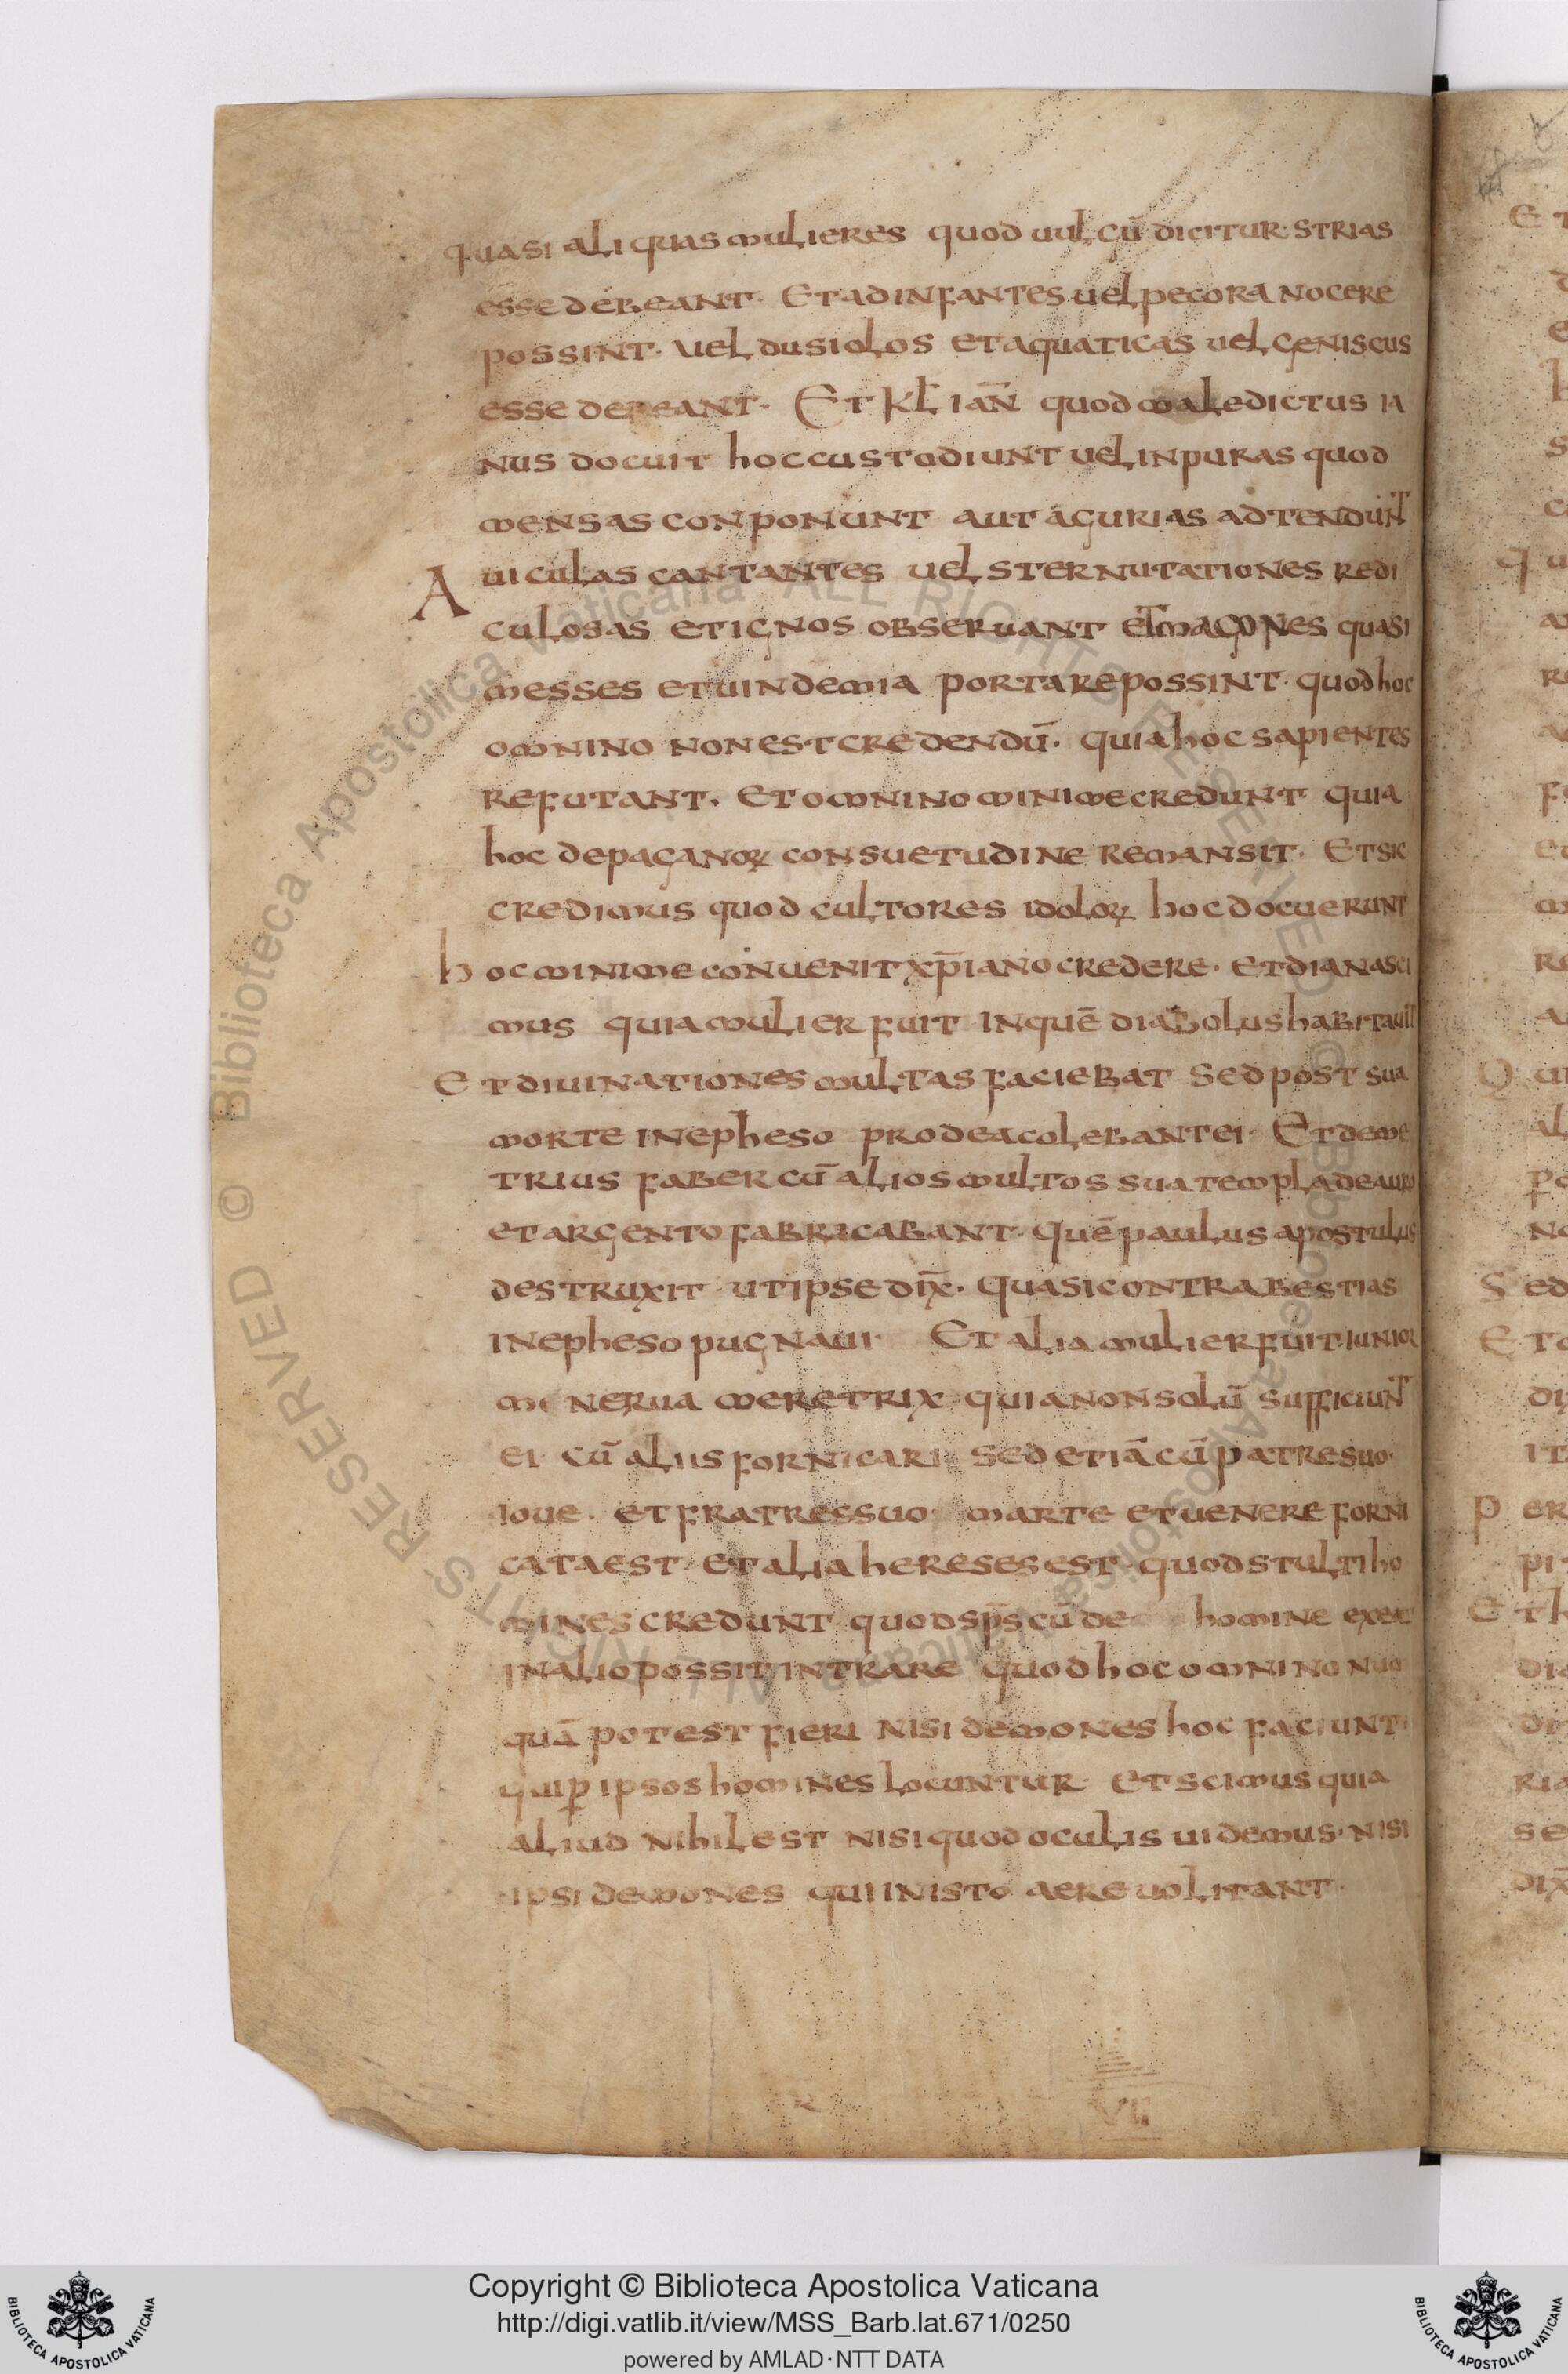 quasi aliquas mulieres quod uulgū dicitur strias
esse debeant. Et ad infantes uel pecora nocere
possint. uel dusiolos et aquaticas uel geniscus
esse debeant. Et kł ian̄ quod maledictus ia
nus docuit hoc custodiunt uel inpuras quod
mensas conponunt aut agurias adtendunt
Auiculas cantantes uel sternutationes redi
culosas et ignos obseruant et magones quasi
messes et uindemia portare possint. quod hoc
omnino non est credendū. quia hoc sapientes
refutant. et omnino minime credunt quia
hoc de paganoꝝ consuetudine remansit. Et sic
credimus quod cultores idoloꝝ hoc docuerunt
hoc minime conuenit xp̄iano credere. et diana sci
mus quia mulier fuit in quē diabolus habitauit
Et diuinationes multas faciebat sed post sua
morte in epheso pro dea colebant ei. Et deme
trius faber cū alios multos sua templa de auro
et argento fabricabant. quē paulus apostulus
destruxit. ut ipse dix̄. quasi contra bestias
in epheso pugnaui. Et alia mulier fuit. iunior
menerua meretrix quia non solū sufficiunt
ei cū aliis fornicari sed etiā cū patre suo.
ioue. et fratres suo marte et uenere forni
cata est. et alia hereses est. quod stulti ho
mines credunt quod sp̄s cū de homine exiet
in alio possit intrare quod hoc omnino num
quā potest fieri nisi demones hoc faciunt
qui ꝑ ipsos homines locuntur. et scimus quia
aliud nihil est nisi quod oculis uidemus. nisi
ipsi demones qui in isto aere uolitant.
VII
Copyright © Biblioteca Apostolica Vaticana
http://digi.vatlib.it/view/MSS_Barb.lat.671/0250
powered by AMLAD·NTT DATA
BIBLIOTECA APOSTOLICA VATICANA
BIBLIOTECA APOSTOLICA VATICANA